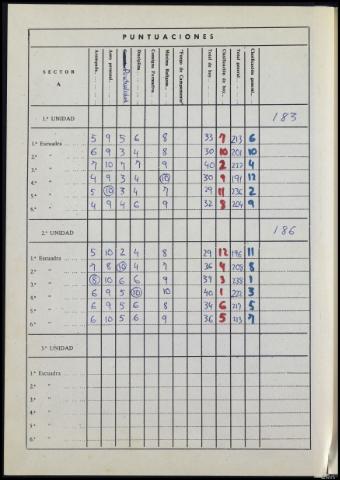 PUNTUACIONES
SECTOR A Acampada Aseo personal Puntualidad Disciplina Consigna Formativa Máxima Religiosa "Fuego de Campamento" Total de hoy Clasificación de hoy Total general Clasificación general
1.ª UNIDAD 183
1.ª Escuadra 5 9 5 6 8 33 7 213 6
2.ª " 6 9 3 4 8 30 10 201 10
3.ª " 7 10 7 7 9 40 2 222 4
4.ª " 4 9 3 4 10 30 9 191 12
5.ª " 5 10 3 4 7 29 11 236 2
6.ª " 4 9 4 6 9 32 8 204 9
2.ª UNIDAD 186
1.ª Escuadra 5 10 2 4 8 29 12 196 11
2.ª " 7 8 10 4 7 36 4 208 8
3.ª " 8 10 6 6 9 39 3 238 1
4.ª " 6 9 5 10 10 40 1 222 3
5.ª " 6 9 5 6 8 34 6 217 5
6.ª " 6 10 5 6 9 36 5 213 7
3.ª UNIDAD
1.ª Escuadra
2.ª "
3.ª "
4.ª "
5.ª "
6.ª "